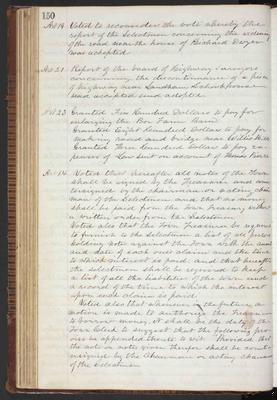 150
Art 19. Voted to reconsider the vote whereby the
report of the Selectmen concerning the widening
of the road near the house of Richard Dwyer
was accepted
Art 21. Report of the board of Highway Surveyors
concerning the discontinuance of a piece
of highway near Landham Schoolhouse
was accepted and adopted
Art 23 Granted Five Hundred Dollars to pay for
enlarging the Poor Farm Barn
Granted Eight Hundred Dollars to pay for
making road and bridge near
Granted Three Hundred Dollars to pay ex-
penses of Law suit on account of Thomas
Art 14. Voted that hereafter all notes of the Town
shall be signed by the Treasurer and coun-
tersigned by the chairman or acting chair-
man of the Selectmen and that no money
shall be paid from the Town Treasury without
a written order from the Selectmen
Voted also that the Town Treasurer be required
to furnish to the Selectmen a list of all persons
holding notes against the Town with the amount
and date of each one's claim and the time
to which interest is paid and that hereafter
the selectmen shall be required to keep
a list of all the liabilities of the Town and
a record of the time to which the interest
upon each claim is paid
Voted also that whenever in the future a
motion is made to authorize the Treasurer
to borrow money, it shall be the duty of the
Town Clerk to suggest that the following pro-
viso be appended thereto to wit Provided that
the note or notes given therefor shall be count-
ersigned by the Chairman or acting chairman
of the Selectmen